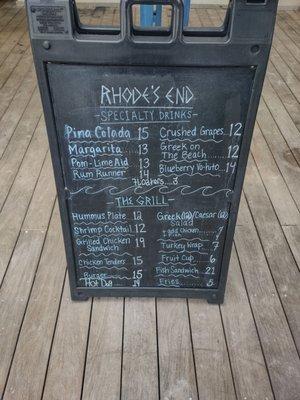 RHODE'S END
SPECIALTY DRINKS
Pina Colada 15
Margarita 13
Pom-Lime Aid 13
Rum Runner 14
Crushed Grapes 12
Greek on
The Beach 12
Blueberry Yo-hito 14
Floaters 3
THE GRILL
Hummus Plate 12
Shrimp Cocktail 12
Grilled Chicken 19
Sandwich
Chicken Tenders 15
Burger 12
Hot Dog 14
Greek /Caesar
Salad
add Chicken 7
Turkey Wrap 7
Fruit Cup 6
Fish Sandwich 21
Fries 5